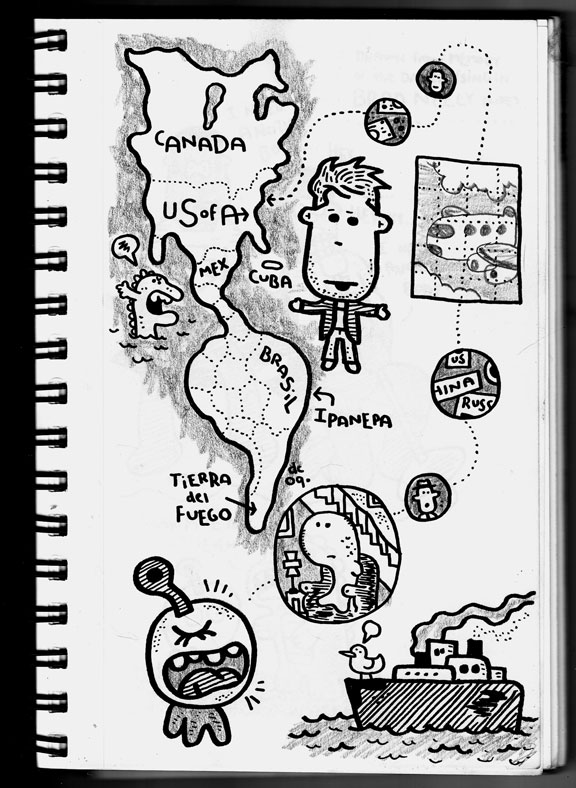 CANADA
US of A
MEX
CUBA
US
HINA
RUSS
BRASIL
IPANEPA
dc
09.
TIERRA
del
FUEGO